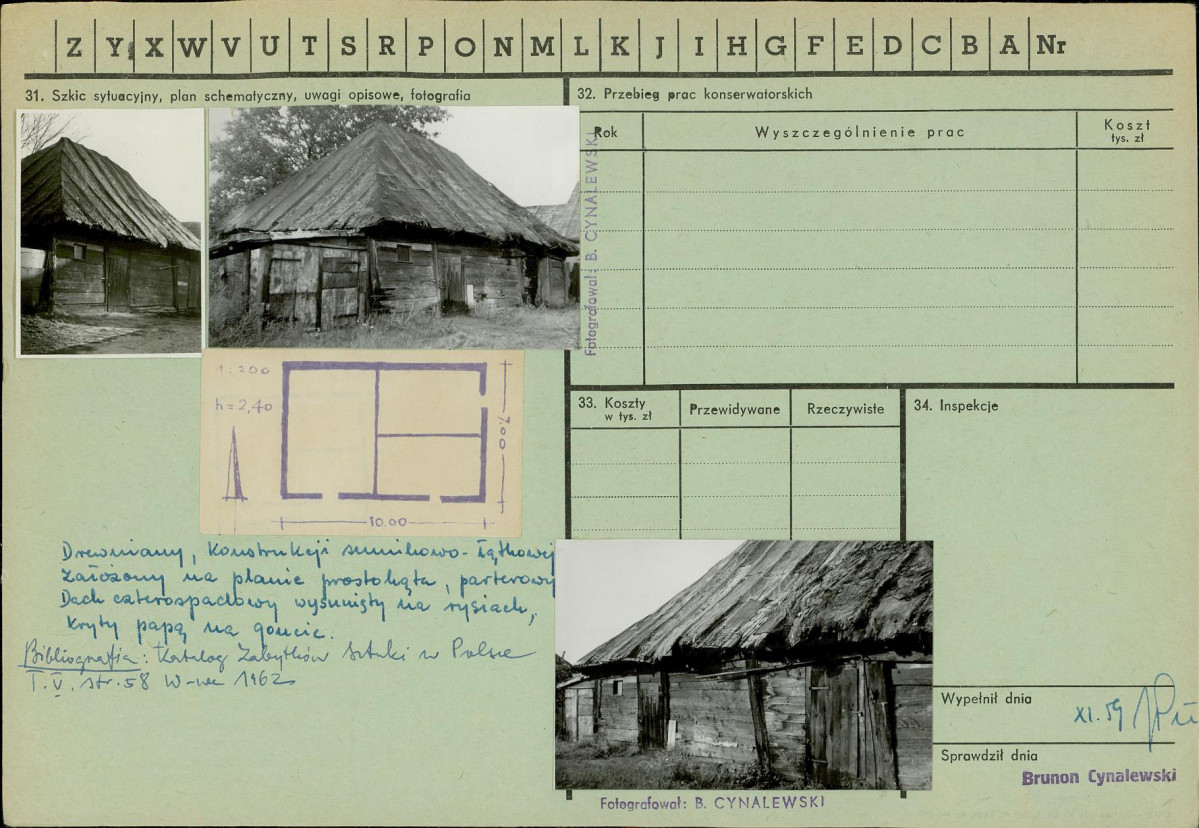 Z Y X W V U T S R P O N M L K J I H G F E D C B A Nr
31. Szkic sytuacyjny, plan schematyczny, uwagi opisowe, fotografia
Fotografował: B. CYNALEWSKI
1:200
h = 2,40
7.00
10.00
Drewniany, konstrukcji sumikowo-łątkowej
założony na planie prostokąta, parterowy
Dach czterospadowy wysunięty na rysiach,
kryty papą na goncie.
Bibliografia: Katalog Zabytków Sztuki w Polsce
T. V. str. 58 W-wa 1962
32. Przebieg prac konserwatorskich
Rok Wyszczególnienie prac Koszt
tys. zł
33. Koszty
w tys. zł
Przewidywane Rzeczywiste
34. Inspekcje
Fotografował: B. CYNALEWSKI
Wypełnił dnia
XI.59
Sprawdził dnia
Brunon Cynalewski